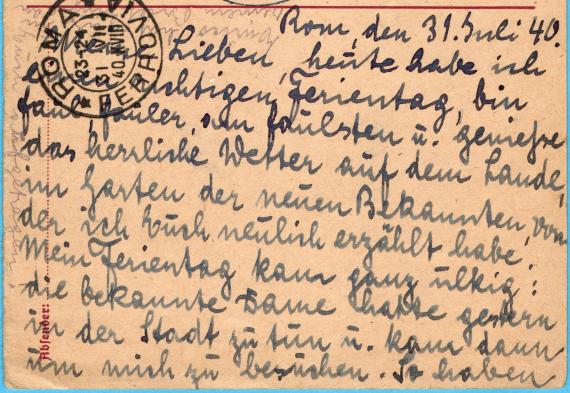 Rom, den 31. Juli 40.
Lieben, heute habe ich
richtigen Ferientag, bin
faul, fauler, am faulsten u. genieße
das herrliche Wetter auf dem Lande,
im Garten der neuen Bekannten, von
der ich Euch neulich erzählt habe.
Mein Ferientag kam ganz ulkig:
die bekannte Dame hatte gestern
in der Stadt zu tun u. kam dann
um mich zu besuchen. So haben
ROMA
FERROVIA
23-24
31
40 XVIII
Absender: